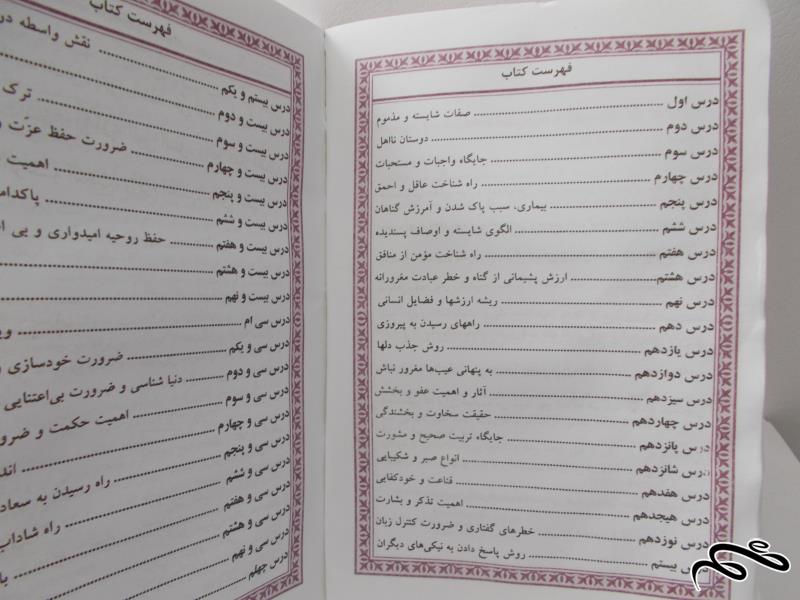 فهرست کتاب
درس اول ........ صفات شایسته و مذموم
درس دوم ........ دوستان نااهل
درس سوم ........ جایگاه واجبات و مستحبات
درس چهارم ........ راه شناخت عاقل و احمق
درس پنجم ........ بیماری، سبب پاک شدن و آمرزش گناهان
درس ششم ........ الگوی شایسته و اوصاف پسندیده
درس هفتم ........ راه شناخت مؤمن از منافق
درس هشتم ........ ارزش پشیمانی از گناه و خطر عبادت مغرورانه
درس نهم ........ ریشه ارزشها و فضایل انسانی
درس دهم ........ راههای رسیدن به پیروزی
درس یازدهم ........ روش جذب دلها
درس دوازدهم ........ به پنهانی عیب‌ها مغرور نباش
درس سیزدهم ........ آثار و اهمیت عفو و بخشش
درس چهاردهم ........ حقیقت سخاوت و بخشندگی
درس پانزدهم ........ جایگاه تربیت صحیح و مشورت
درس شانزدهم ........ انواع صبر و شکیبایی
درس هفدهم ........ قناعت و خودکفایی
درس هیجدهم ........ اهمیت تذکر و بشارت
درس نوزدهم ........ خطرهای گفتاری و ضرورت کنترل زبان
درس بیستم ........ روش پاسخ دادن به نیکی‌های دیگران
فهرست کتاب
درس بیستم و یکم ........ نقش واسطه در
درس بیست و دوم ........
درس بیست و سوم ........ ترک
درس بیست و چهارم ........ ضرورت حفظ عزّت و
درس بیست و پنجم ........ اهمیت
درس بیست و ششم ........
درس بیست و هفتم ........ حفظ روحیه امیدواری و بی
درس بیست و هشتم ........
درس بیست و نهم ........
درس سی ام ........
درس سی و یکم ........ ضرورت خودسازی
درس سی و دوم ........ دنیا شناسی و ضرورت بی‌اعتنایی
درس سی و سوم ........ اهمیت حکمت و
درس سی و چهارم ........
درس سی و پنجم ........
درس سی و ششم ........ راه رسیدن به
درس سی و هفتم ........ راه
درس سی و هشتم ........
درس سی و نهم ........
درس چهلم ........